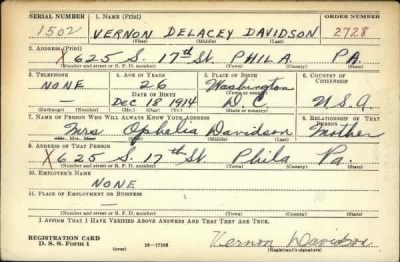 SERIAL NUMBER 1. NAME (Print) ORDER NUMBER
1502 VERNON DELACEY DAVIDSON 2728
(First) (Middle) (Last)
2. ADDRESS (Print)
X 625 S. 17th St. PHILA. PA.
(Number and street or R. F. D. number) (Town) (County) (State)
3. TELEPHONE 4. AGE IN YEARS 5. PLACE OF BIRTH 6. COUNTRY OF CITIZENSHIP
NONE 26 Washington
DATE OF BIRTH (Town or county)
— Dec 18 1914 D.C. U.S.A.
(Exchange) (Number) (Mo.) (Day) (Yr.) (State or country)
7. NAME OF PERSON WHO WILL ALWAYS KNOW YOUR ADDRESS 8. RELATIONSHIP OF THAT PERSON
Mrs Ophelia Davidson Mother
(Mr., Mrs., Miss) (First) (Middle) (Last)
9. ADDRESS OF THAT PERSON
X 625 S. 17th St. Phila Pa.
(Number and street or R. F. D. number) (Town) (County) (State)
10. EMPLOYER'S NAME
NONE
11. PLACE OF EMPLOYMENT OR BUSINESS
—
(Number and street or R. F. D. number) (Town) (County) (State)
I AFFIRM THAT I HAVE VERIFIED ABOVE ANSWERS AND THAT THEY ARE TRUE.
REGISTRATION CARD
D. S. S. Form 1 (over) 16—17105 Vernon Davidson
(Registrant's signature)